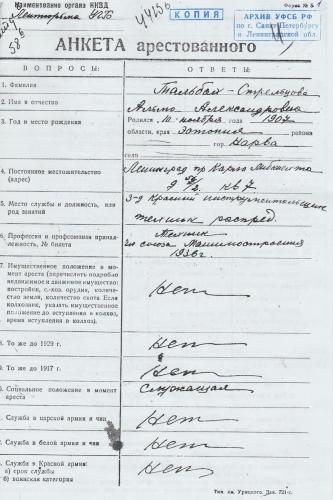 Наименование органа НКВД
Форма № 5
КОПИЯ
АРХИВ УФСБ РФ
по г. Санкт-Петербургу
и Ленинградской обл.
АНКЕТА арестованного
ВОПРОСЫ:
ОТВЕТЫ:
1. Фамилия
Тальбах-Стрельцова
2. Имя и отчество
Александровна
3. Год и место рождения
Родился 10 ноября года 1907
области, края Эстония района
гор. Нарва
села
4. Постоянное местожительство (адрес)
Ленинград пр Карла Либкнехта
кв 7
5. Место службы и должность, или род занятий
3-д Красный инструментальщик
распред.
6. Профессия и профсоюзная принадлежность, № билета
Союза Машиностроения
1936 г.
7. Имущественное положение в момент ареста (перечислить подробно
недвижимое и движимое имущество:
постройки, с.-хоз. орудия, количество земли, количество скота. Если
колхозник, указать имущественное
положение до вступления в колхоз,
время вступления в колхоз).
Нет
8. То же до 1929 г.
Нет
9. То же до 1917 г.
Нет
10. Социальное положение в момент ареста
Служащая
Служба в царской армии и чин
Нет
Служба в белой армии и чин
Нет
Служба в Красной армии:
а) срок службы
б) воинская категория
Нет